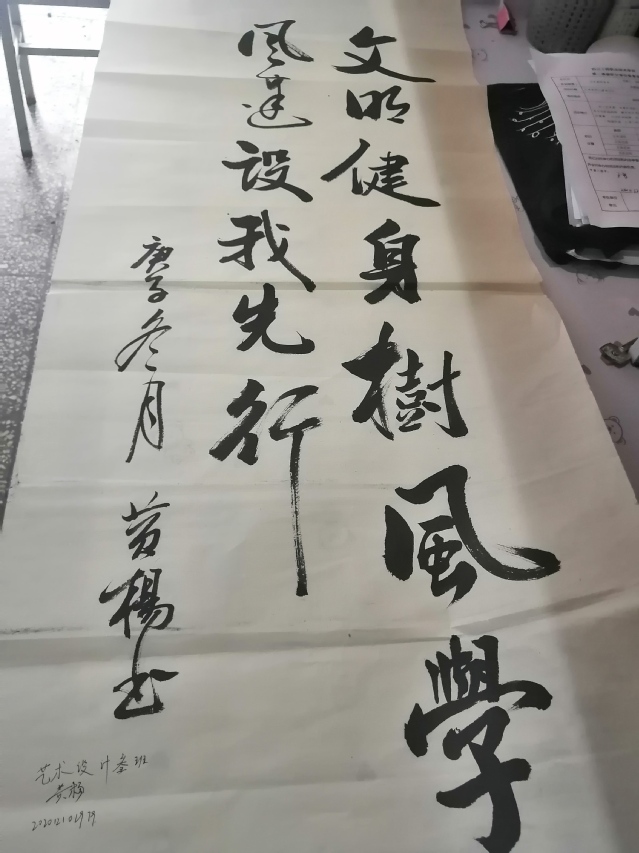 文明健身樹風學
風建設我先行
庚子冬月 黄楊书
艺术设计叁班
黄楊